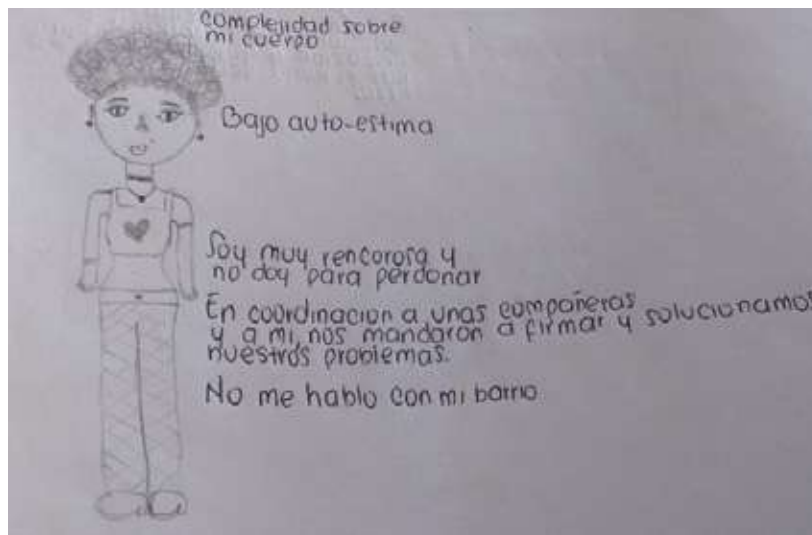 complejidad sobre
mi cuerpo
Bajo auto-estima
Soy muy rencorosa y
no doy para perdonar
En coordinacion a unas compañeras
y a mi nos mandaron a firmar y solucionamos
nuestros problemas.
No me hablo con mi barrio